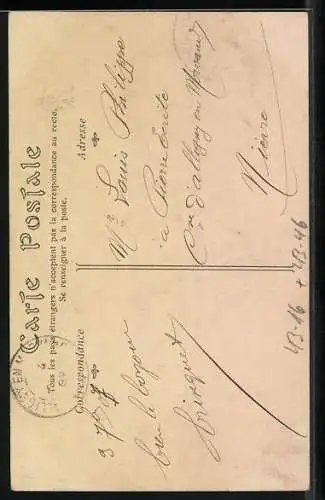 Carte Postale
Tous les pays étrangers n'acceptent pas la correspondance au recto.
Se renseigner à la poste.
Correspondance
Adresse
bien le bonjour
Mr Louis Philippe
à Pierre Ecrite
Cne d'alligny en Morvand
Nièvre
43-16 + 43-46